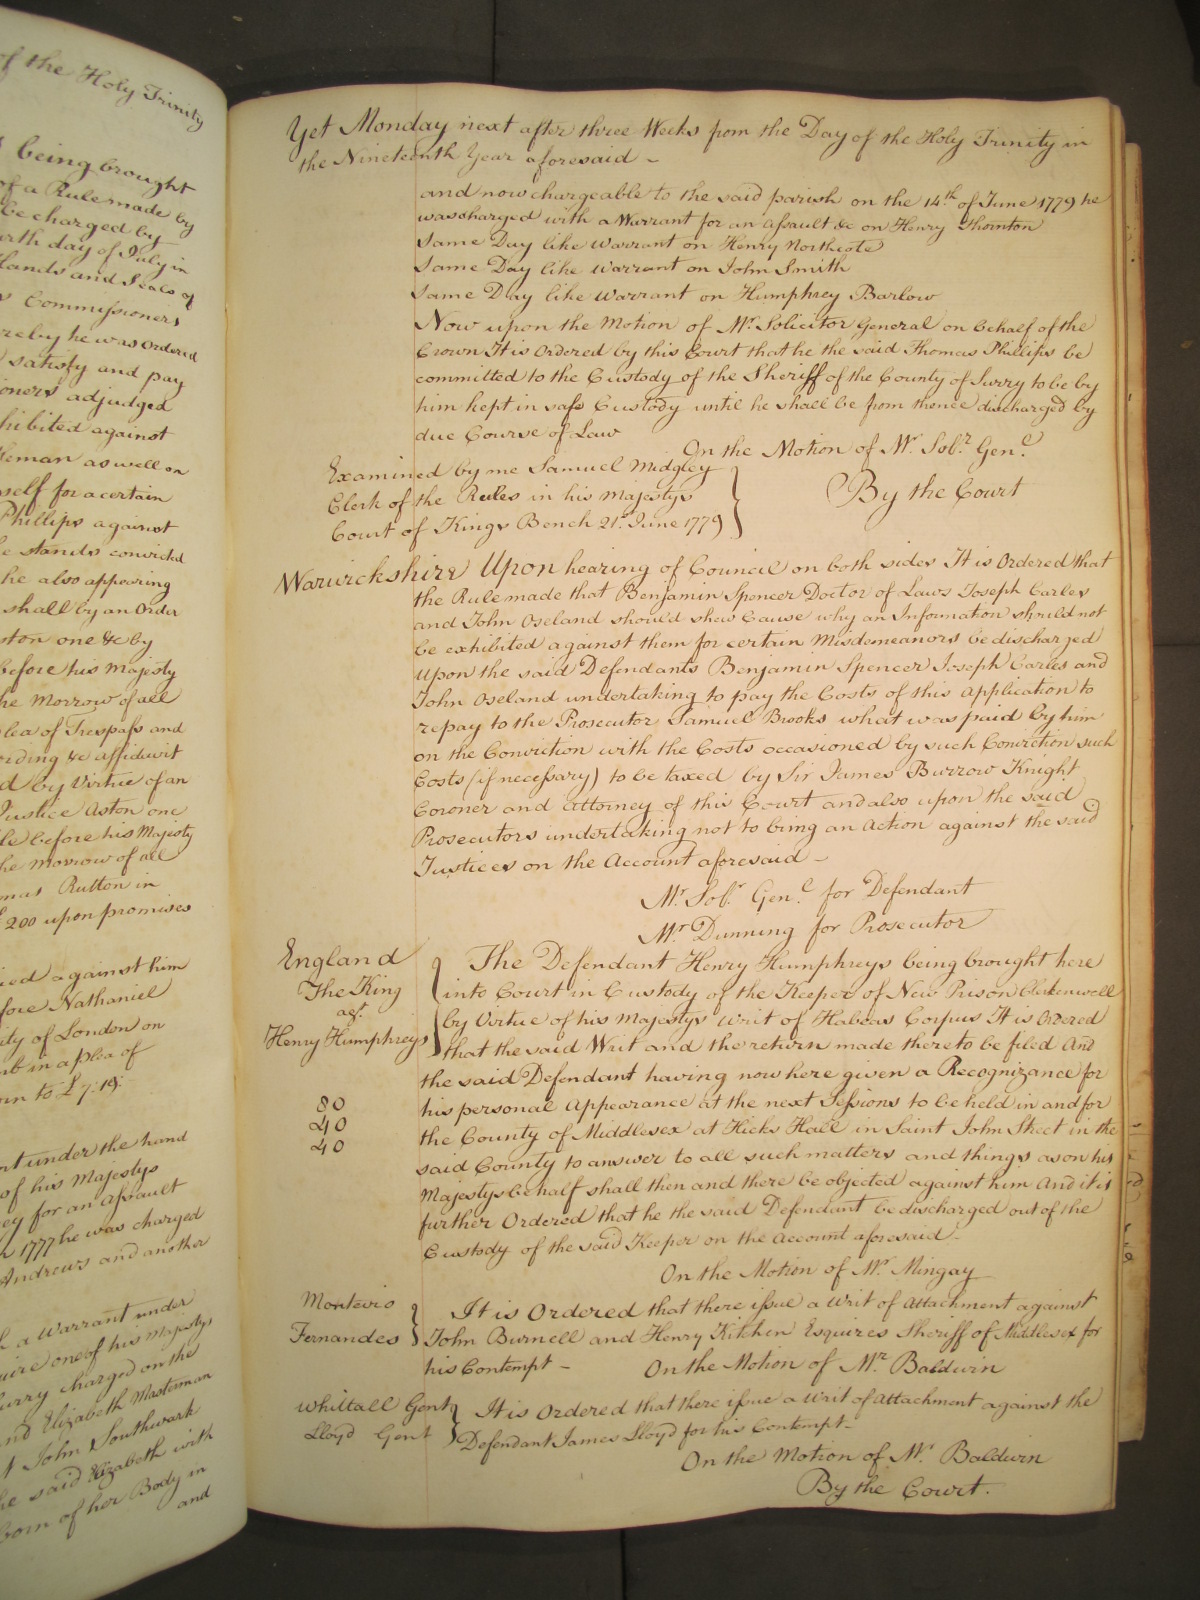 of the Holy Trinity
being brought
of a Rule made by
be charged by
day of July in
Hands and Seals of
Commissioners
he was Ordered
satisfy and pay
adjudged
against
as well on
self for a certain
Phillips against
stands convicted
he also appearing
shall by an Order
one &c by
before his Majesty
Morrow of all
Plea of Trespass and
&c affidavit
by Virtue of an
Justice Aston one
before his Majesty
he morrow of all
Rutton in
£200 upon promises
against him
Nathaniel
of London on
in a plea of
to £7:19:
under the hand
of his Majestys
for an Assault
1777 he was charged
Andrews and another
a Warrant under
one of his Majestys
Surry charged on the
and Elizabeth Masterman
John Southwark
he said Elizabeth with
born of her Body in
and
Yet Monday next after three Weeks from the Day of the Holy Trinity in
the Nineteenth Year aforesaid -
and now chargeable to the said parish on the 14th of June 1779 he
was charged with a Warrant for an Assault &c on Henry Thornton
Same Day like Warrant on Henry Northcote
Same Day like Warrant on John Smith
Same Day like Warrant on Humphrey Barlow
Now upon the Motion of Mr Solicitor General on behalf of the
Crown It is Ordered by this Court that he the said Thomas Phillips be
committed to the Custody of the Sheriff of the County of Surry to be by
him kept in safe Custody until he shall be from thence discharged by
due Course of Law
On the Motion of Mr Solr Genl
Examined by me Samuel Midgley
Clerk of the Rules in his Majestys
Court of Kings Bench 21st June 1779
By the Court
Warwickshire Upon hearing of Council on both sides It is Ordered that
the Rule made that Benjamin Spencer Doctor of Laws Joseph Carles
and John Oseland should shew Cause why an Information should not
be exhibited against them for certain Misdemeanors be discharged
Upon the said Defendants Benjamin Spencer Joseph Carles and
John Oseland undertaking to pay the Costs of this Application to
repay to the Prosecutor Samuel Brooks what was paid by him
on the Conviction with the Costs occasioned by such Conviction such
Costs (if necessary) to be taxed by Sir James Burrow Knight
Coroner and Attorney of this Court and also upon the said
Prosecutors undertaking not to bring an Action against the said
Justices on the Account aforesaid -
Mr Solr Genl for Defendant
Mr Dunning for Prosecutor
England
The King
agt
Henry Humphreys
80
40
40
The Defendant Henry Humphreys being brought here
into Court in Custody of the Keeper of New Prison Clerkenwell
by Virtue of his Majestys Writ of Habeas Corpus It is Ordered
that the said Writ and the return made thereto be filed And
the said Defendant having now here given a Recognizance for
his personal Appearance at the next Sessions to be held in and for
the County of Middlesex at Hicks Hall in Saint John Street in the
said County to answer to all such matters and things as on his
Majestys behalf shall then and there be objected against him And it is
further Ordered that he the said Defendant be discharged out of the
Custody of the said Keeper on the Account aforesaid -
On the Motion of Mr Mingay
Montevio
Fernandes
It is Ordered that there issue a Writ of Attachment against
John Burnell and Henry Kitchen Esquires Sheriff of Middlesex for
his Contempt - On the Motion of Mr Baldwin
Whittall Gent
Lloyd Gent
It is Ordered that there issue a Writ of Attachment against the
Defendant James Lloyd for his Contempt -
On the Motion of Mr Baldwin
By the Court.